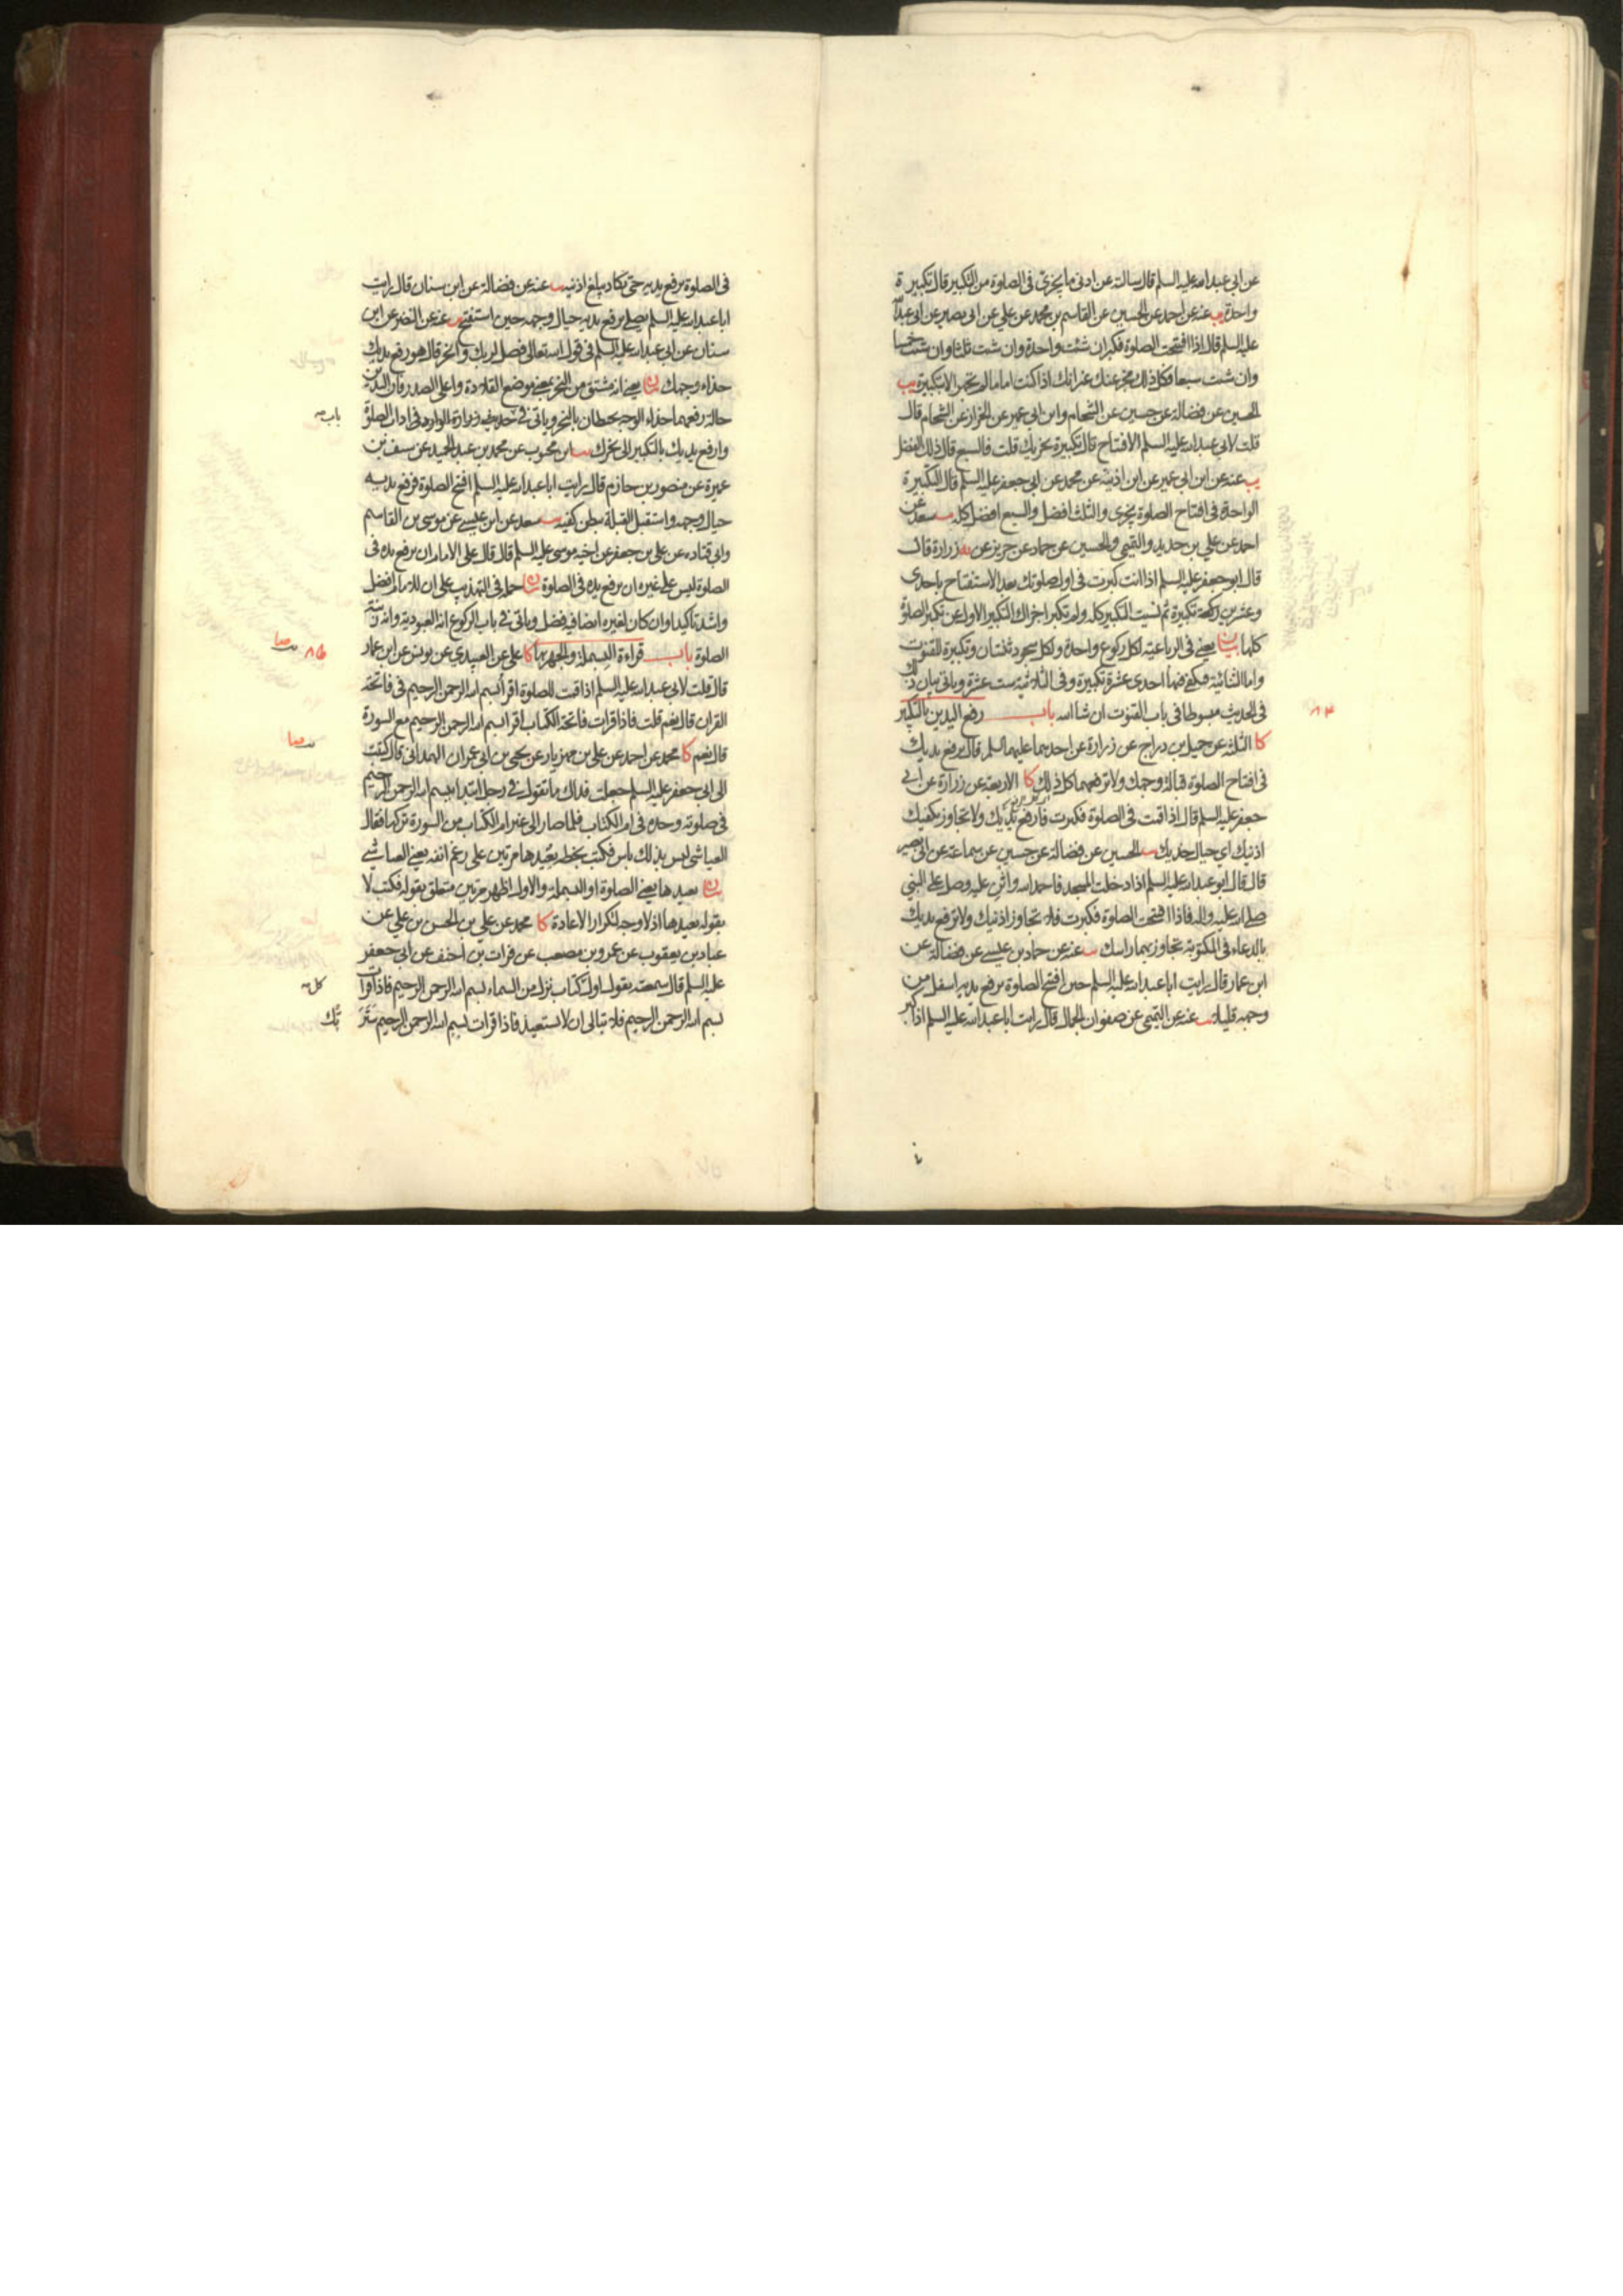 عن ابى عبد الله عليه السلم قال سالته عن ادنى ما يجزى فى الصلوة من التكبير قال تكبيرة
واحدة يب عنه عن احمد عن الحسين عن القاسم بن محمد عن علي عن ابى بصير عن ابى عبد الله
عليه السلم قال اذا افتتحت الصلوة فكبر ان شئت واحدة وان شئت ثلثا وان شئت خمسا
وان شئت سبعا فكل ذلك مجز عنك غير انك اذا كنت اماما لم تجهر الا بتكبيرة يب
الحسين عن فضالة عن حسين عن الشحام وابن ابى عمير عن الخراز عن الشحام قال
قلت لابى عبد الله عليه السلم الافتتاح قال تكبيرة تجزيك قلت فالسبع قال ذلك الفضل
يب عنه عن ابن ابى عمير عن ابن اذينة عن محمد عن ابى جعفر عليه السلم قال التكبيرة
الواحدة فى افتتاح الصلوة تجزى والثلث افضل والسبع افضل كله سعد عن
احمد عن علي بن حديد والتميمى والحسين عن حماد عن حريز عن زرارة قال
قال ابو جعفر عليه السلم اذا انت كبرت فى اول صلوتك بعد الاستفتاح باحدى
وعشرين تكبيرة ثم نسيت التكبير كله ولم تكبر اجزاك التكبير الاول عن تكبير الصلوة
كلها بيان يعني فى الرباعية لكل ركوع واحدة ولكل سجود ثنتان وتكبيرة للقنوت
واما الثنائية فيكفى فيها احدى عشرة تكبيرة وفى الثلاثية ست عشرة وياتى بيان ذلك
فى الحديث مبسوطا فى باب القنوت ان شا الله باب رفع اليدين بالتكبير
كا الثلثة عن جميل بن دراج عن زرارة عن احدهما عليهما السلم قال ترفع يديك
فى افتتاح الصلوة قبالة وجهك ولا ترفعهما كل ذلك كا الاربعة عن زرارة عن ابى
جعفر عليه السلم قال اذا قمت فى الصلوة فكبرت فارفع يديك ولا تجاوز بكفيك
اذنيك اى حيال خديك الحسين عن فضالة عن حسين عن سماعة عن ابى بصير
قال قال ابو عبد الله عليه السلم اذا دخلت المسجد فاحمد الله واثن عليه وصل على النبي
صلى الله عليه واله فاذا افتتحت الصلوة فكبرت فلا تجاوز اذنيك ولا ترفع يديك
بالدعاء فى المكتوبة تجاوز بهما راسك عنه عن حماد بن عيسى عن فضالة عن
ابن عمار قال رايت ابا عبد الله عليه السلم حين افتتح الصلوة يرفع يديه اسفل من
وجهه قليلا عنه عن التميمى عن صفوان الجمال قال رايت ابا عبد الله عليه السلم اذا كبر
٨٤
فى الصلوة يرفع يديه حتى يكاد يبلغ اذنيه عنه عن فضالة عن ابن سنان قال رايت
ابا عبد الله عليه السلم يصلى يرفع يديه حيال وجهه حين استفتح عنه عن النضر عن ابن
سنان عن ابى عبد الله عليه السلم فى قول الله تعالى فصل لربك وانحر قال هو رفع يديك
حذاء وجهك بيان يعنى انه مشتق من النحر بمعنى موضع القلادة واعلى الصدر فان اليدين
حالة رفعهما حذاء الوجه يحيطان بالنحر وياتى فى حديث زرارة الوارد فى اداب الصلوة
وارفع يديك بالتكبير الى نحرك ابن محبوب عن محمد بن عبد الحميد عن سيف بن
عميرة عن منصور بن حازم قال رايت ابا عبد الله عليه السلم افتتح الصلوة فرفع يديه
حيال وجهه واستقبل القبلة ببطن كفيه سعد عن ابن عيسى عن موسى بن القاسم
وابى قتاده عن على بن جعفر عن اخيه موسى عليه السلم قال قال على الامام ان يرفع يده فى
الصلوة ليس على غيره ان يرفع يده فى الصلوة بيان حمله فى التهذيب على ان للامام افضل
واشد تاكيدا وان كان لغيره ايضا فيه فضل وياتى فى باب الركوع انه العبودية وانه زينة
الصلوة باب قراءة البسملة والجهر بها كا على عن العبيدي عن يونس عن ابن عمار
قال قلت لابى عبد الله عليه السلم اذا قمت للصلوة اقرأ بسم الله الرحمن الرحيم فى فاتحة
القران قال نعم قلت فاذا قرات فاتحة الكتاب اقرا بسم الله الرحمن الرحيم مع السورة
قال نعم كا محمد عن احمد عن على بن مهزيار عن يحيى بن ابى عمران الهمدانى قال كتبت
الى ابى جعفر عليه السلم جعلت فداك ما تقول فى رجل ابتدا ببسم الله الرحمن الرحيم
فى صلوته وحده فى ام الكتاب فلما صار الى غير ام الكتاب من السورة تركها فقال
العياشى ليس بذلك باس فكتب بخطه يعيدها مرتين على رغم انفه يعنى العباسى
بيان يعيدها يعنى الصلوة او البسملة والاول اظهر مرتين متعلق بقوله فكتب لا
بقوله يعيدها اذ لا وجه لتكرار الاعادة كا محمد عن علي بن الحسن بن علي عن
عباد بن يعقوب عن عمرو بن مصعب عن فرات بن احنف عن ابى جعفر
عليه السلم قال سمعته يقول اول كتاب نزل من السماء بسم الله الرحمن الرحيم فاذا قرات
بسم الله الرحمن الرحيم فلا تبالى ان لا تستعيذ فاذا قرات بسم الله الرحمن الرحيم سَتَرَ
تْك
باب
٨٥
كل